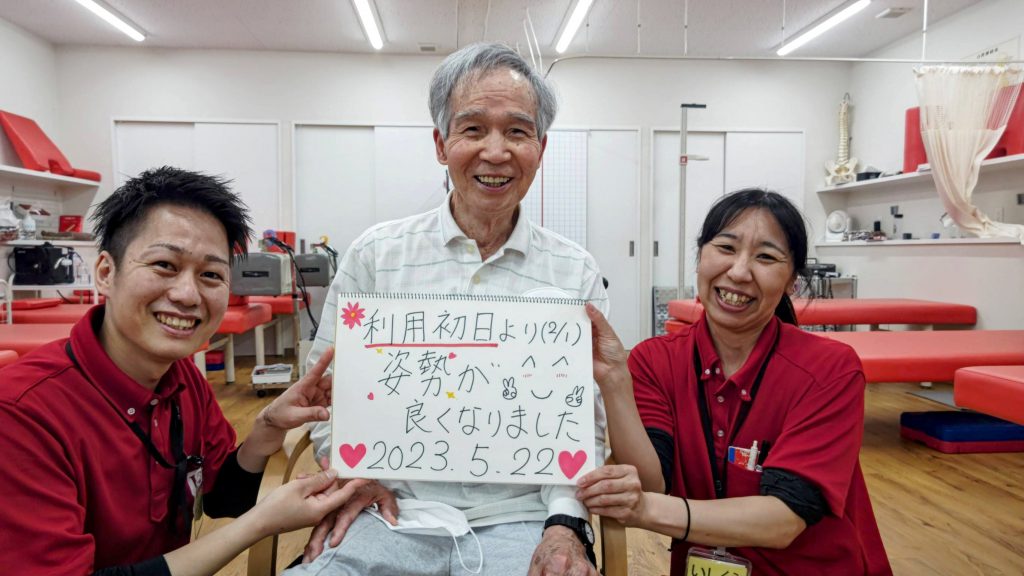 利用初日より(2/1)
姿勢が
良くなりました
2023.5.22